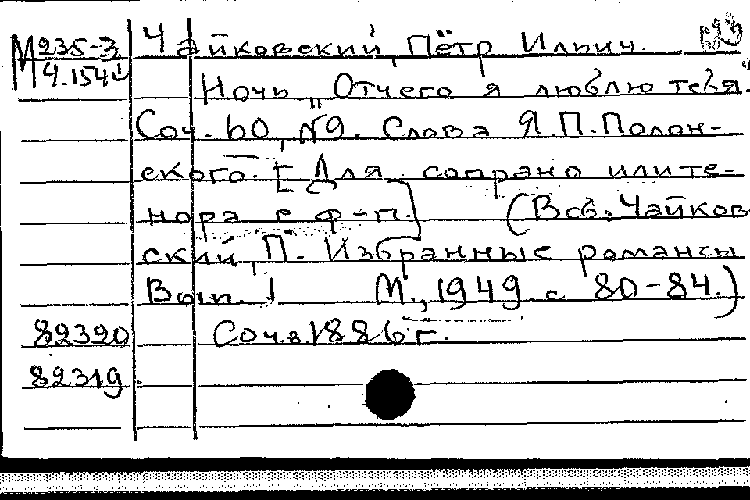 М 235-3
М 4.154
Чайковский, Пётр Ильич.
Ночь „Отчего я люблю тебя“.
Соч. 60, №9. Слова Я.П.Полон-
ского. [Для сопрано или те-
нора с ф-п.] (В сб.: Чайков
ский, П. Избранные романсы
Вып. 1 М., 1949 с 80-84.)
82320 Соч.в.1886 г.
82319